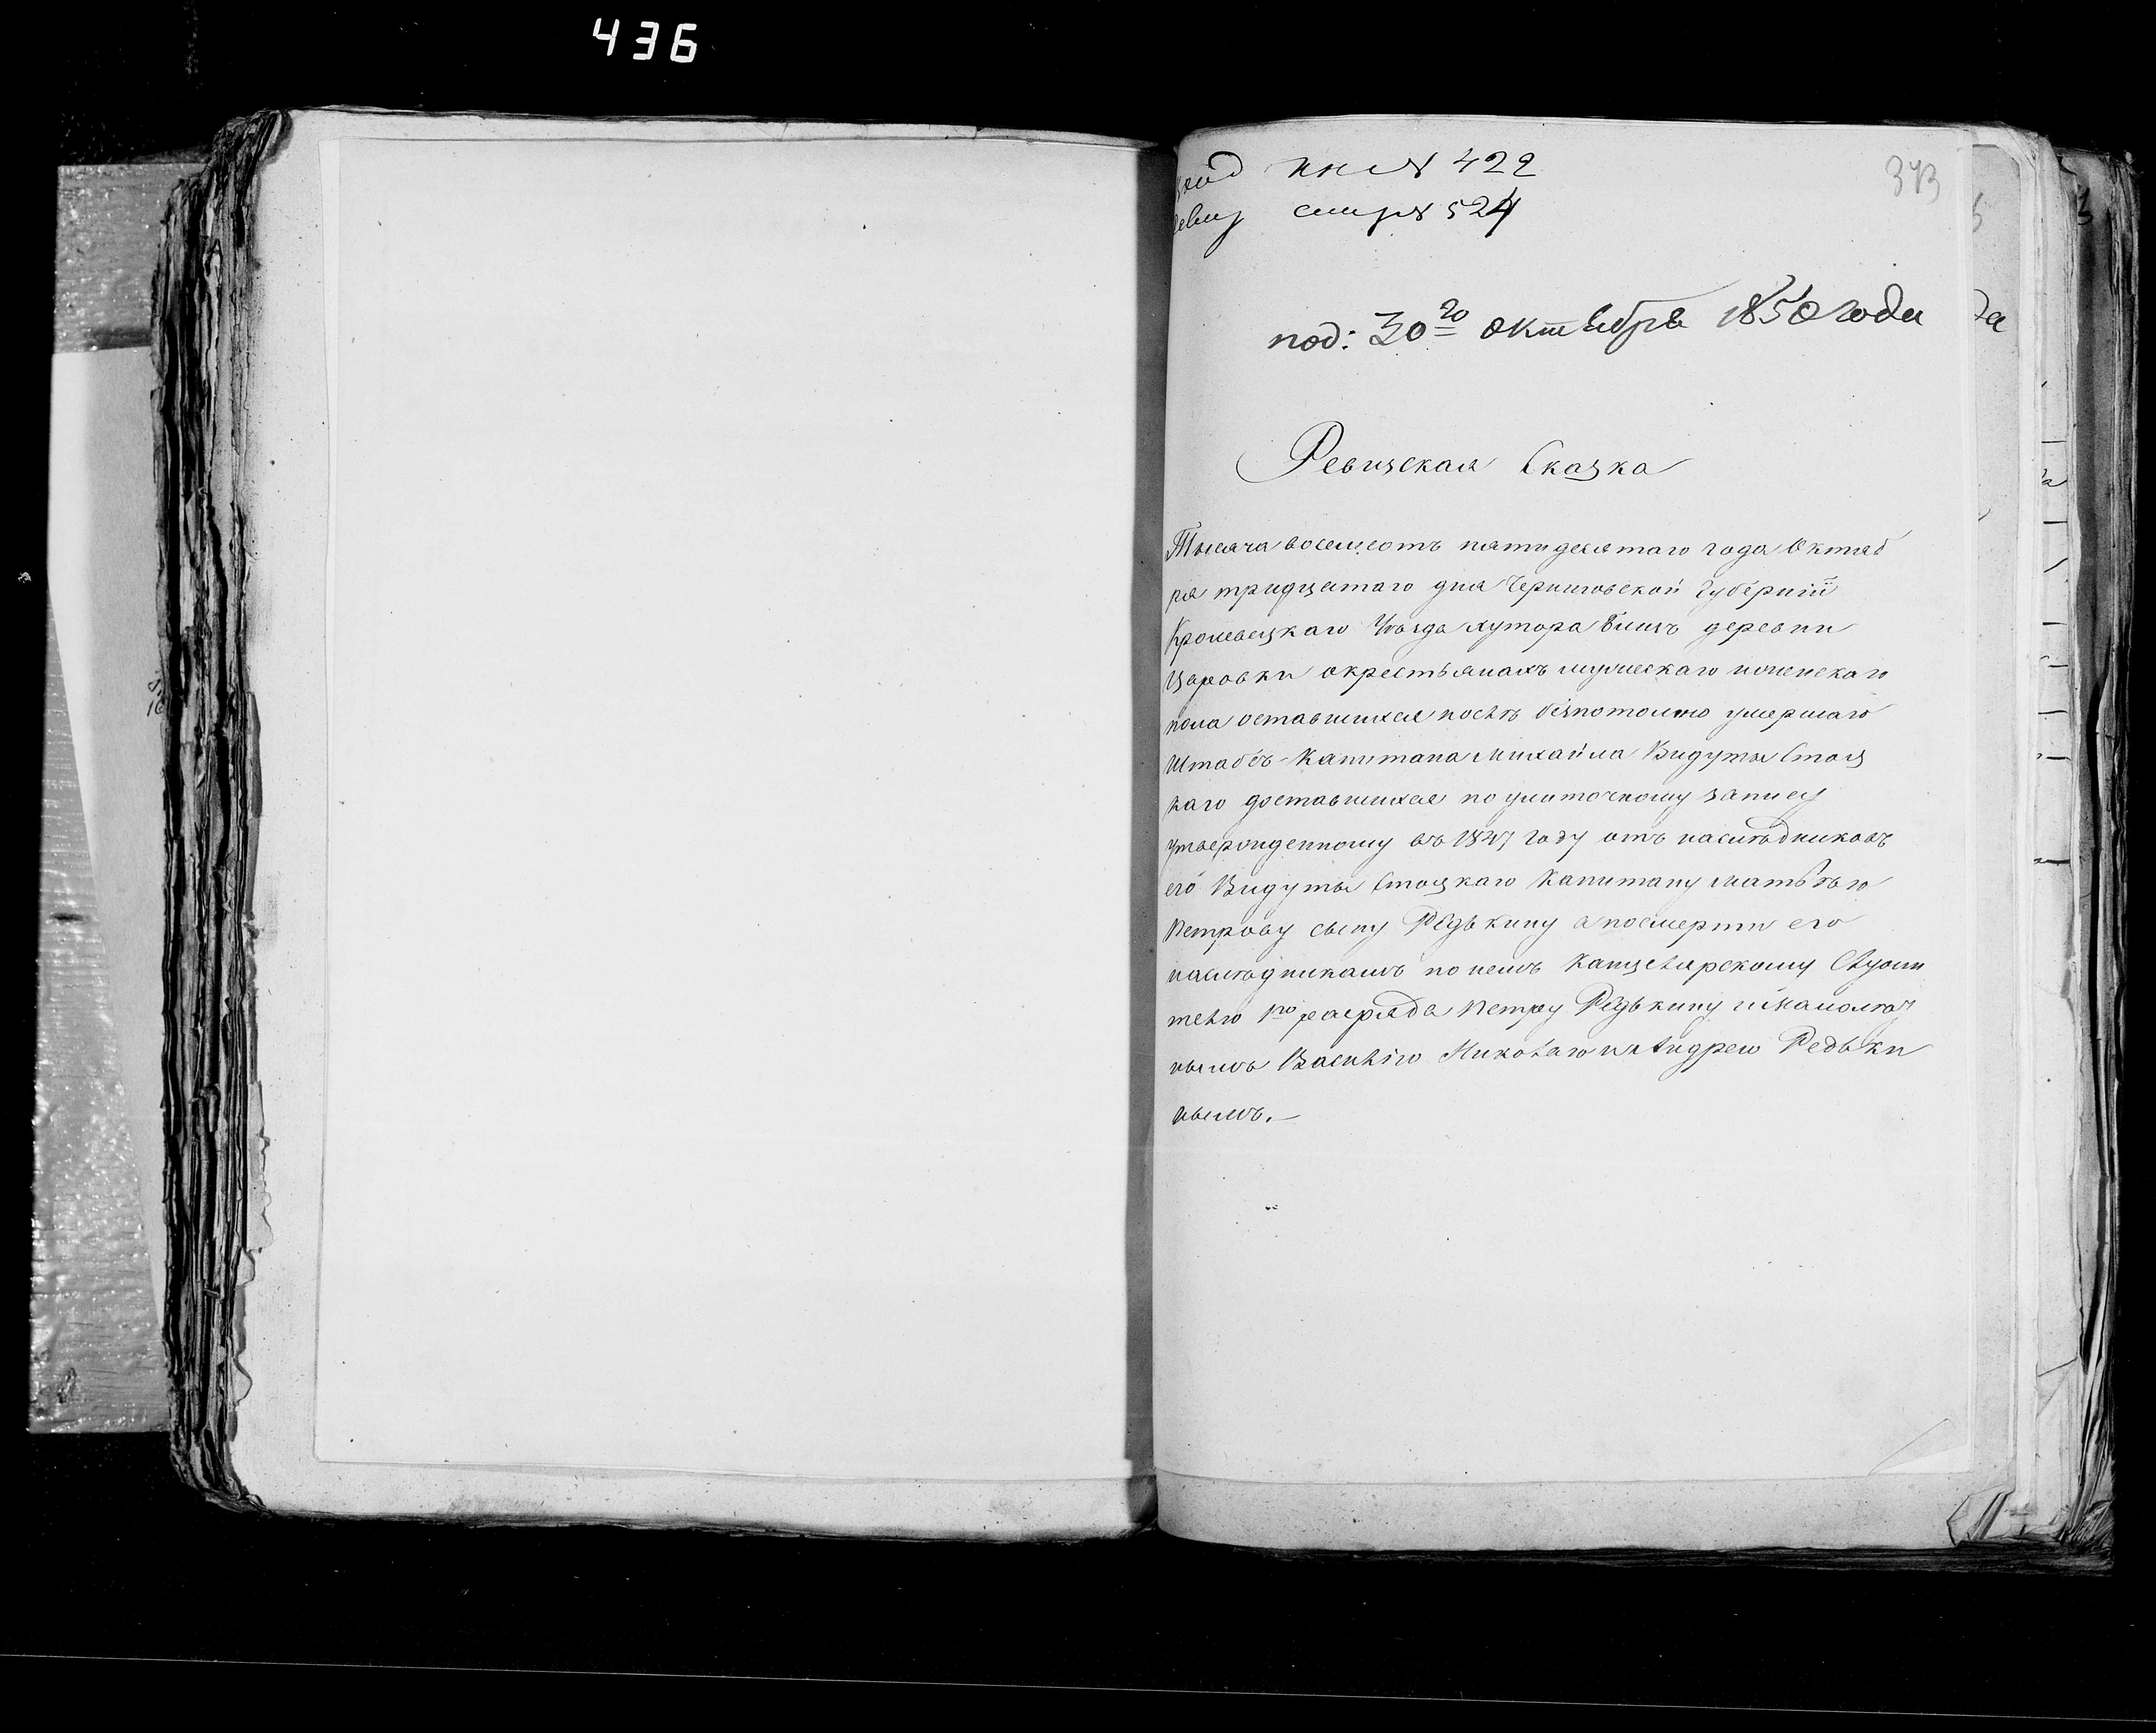 436
373
кн № 422
№ 524
под: 30го октября 1850 года
Ревизская Сказка
Тысяча восемсотъ пятидесятаго года Октяб
ря тридцатаго дня Черниговской Губерніи
Кролевецкаго Уѣзда хутора близъ деревни
окрестьянахъ мужескаго иженскаго
пола оставшихся послѣ безпотомно умершаго
Штабсъ-Капитана Михайла Видуты Стоц
каго доставшихся по уступочному запису
утвержденному въ 1847 году отъ наслѣдниковъ
его Видуты Стоцкаго Капитану Матвѣю
Петрову сыну Редькину а посмерти его
наслѣдникамъ по немъ Канцелярскому Служи
телю 1го разряда Петру Редькину ималолѣт
нымъ Василію Николаю и Андрею Редьки
нымъ.